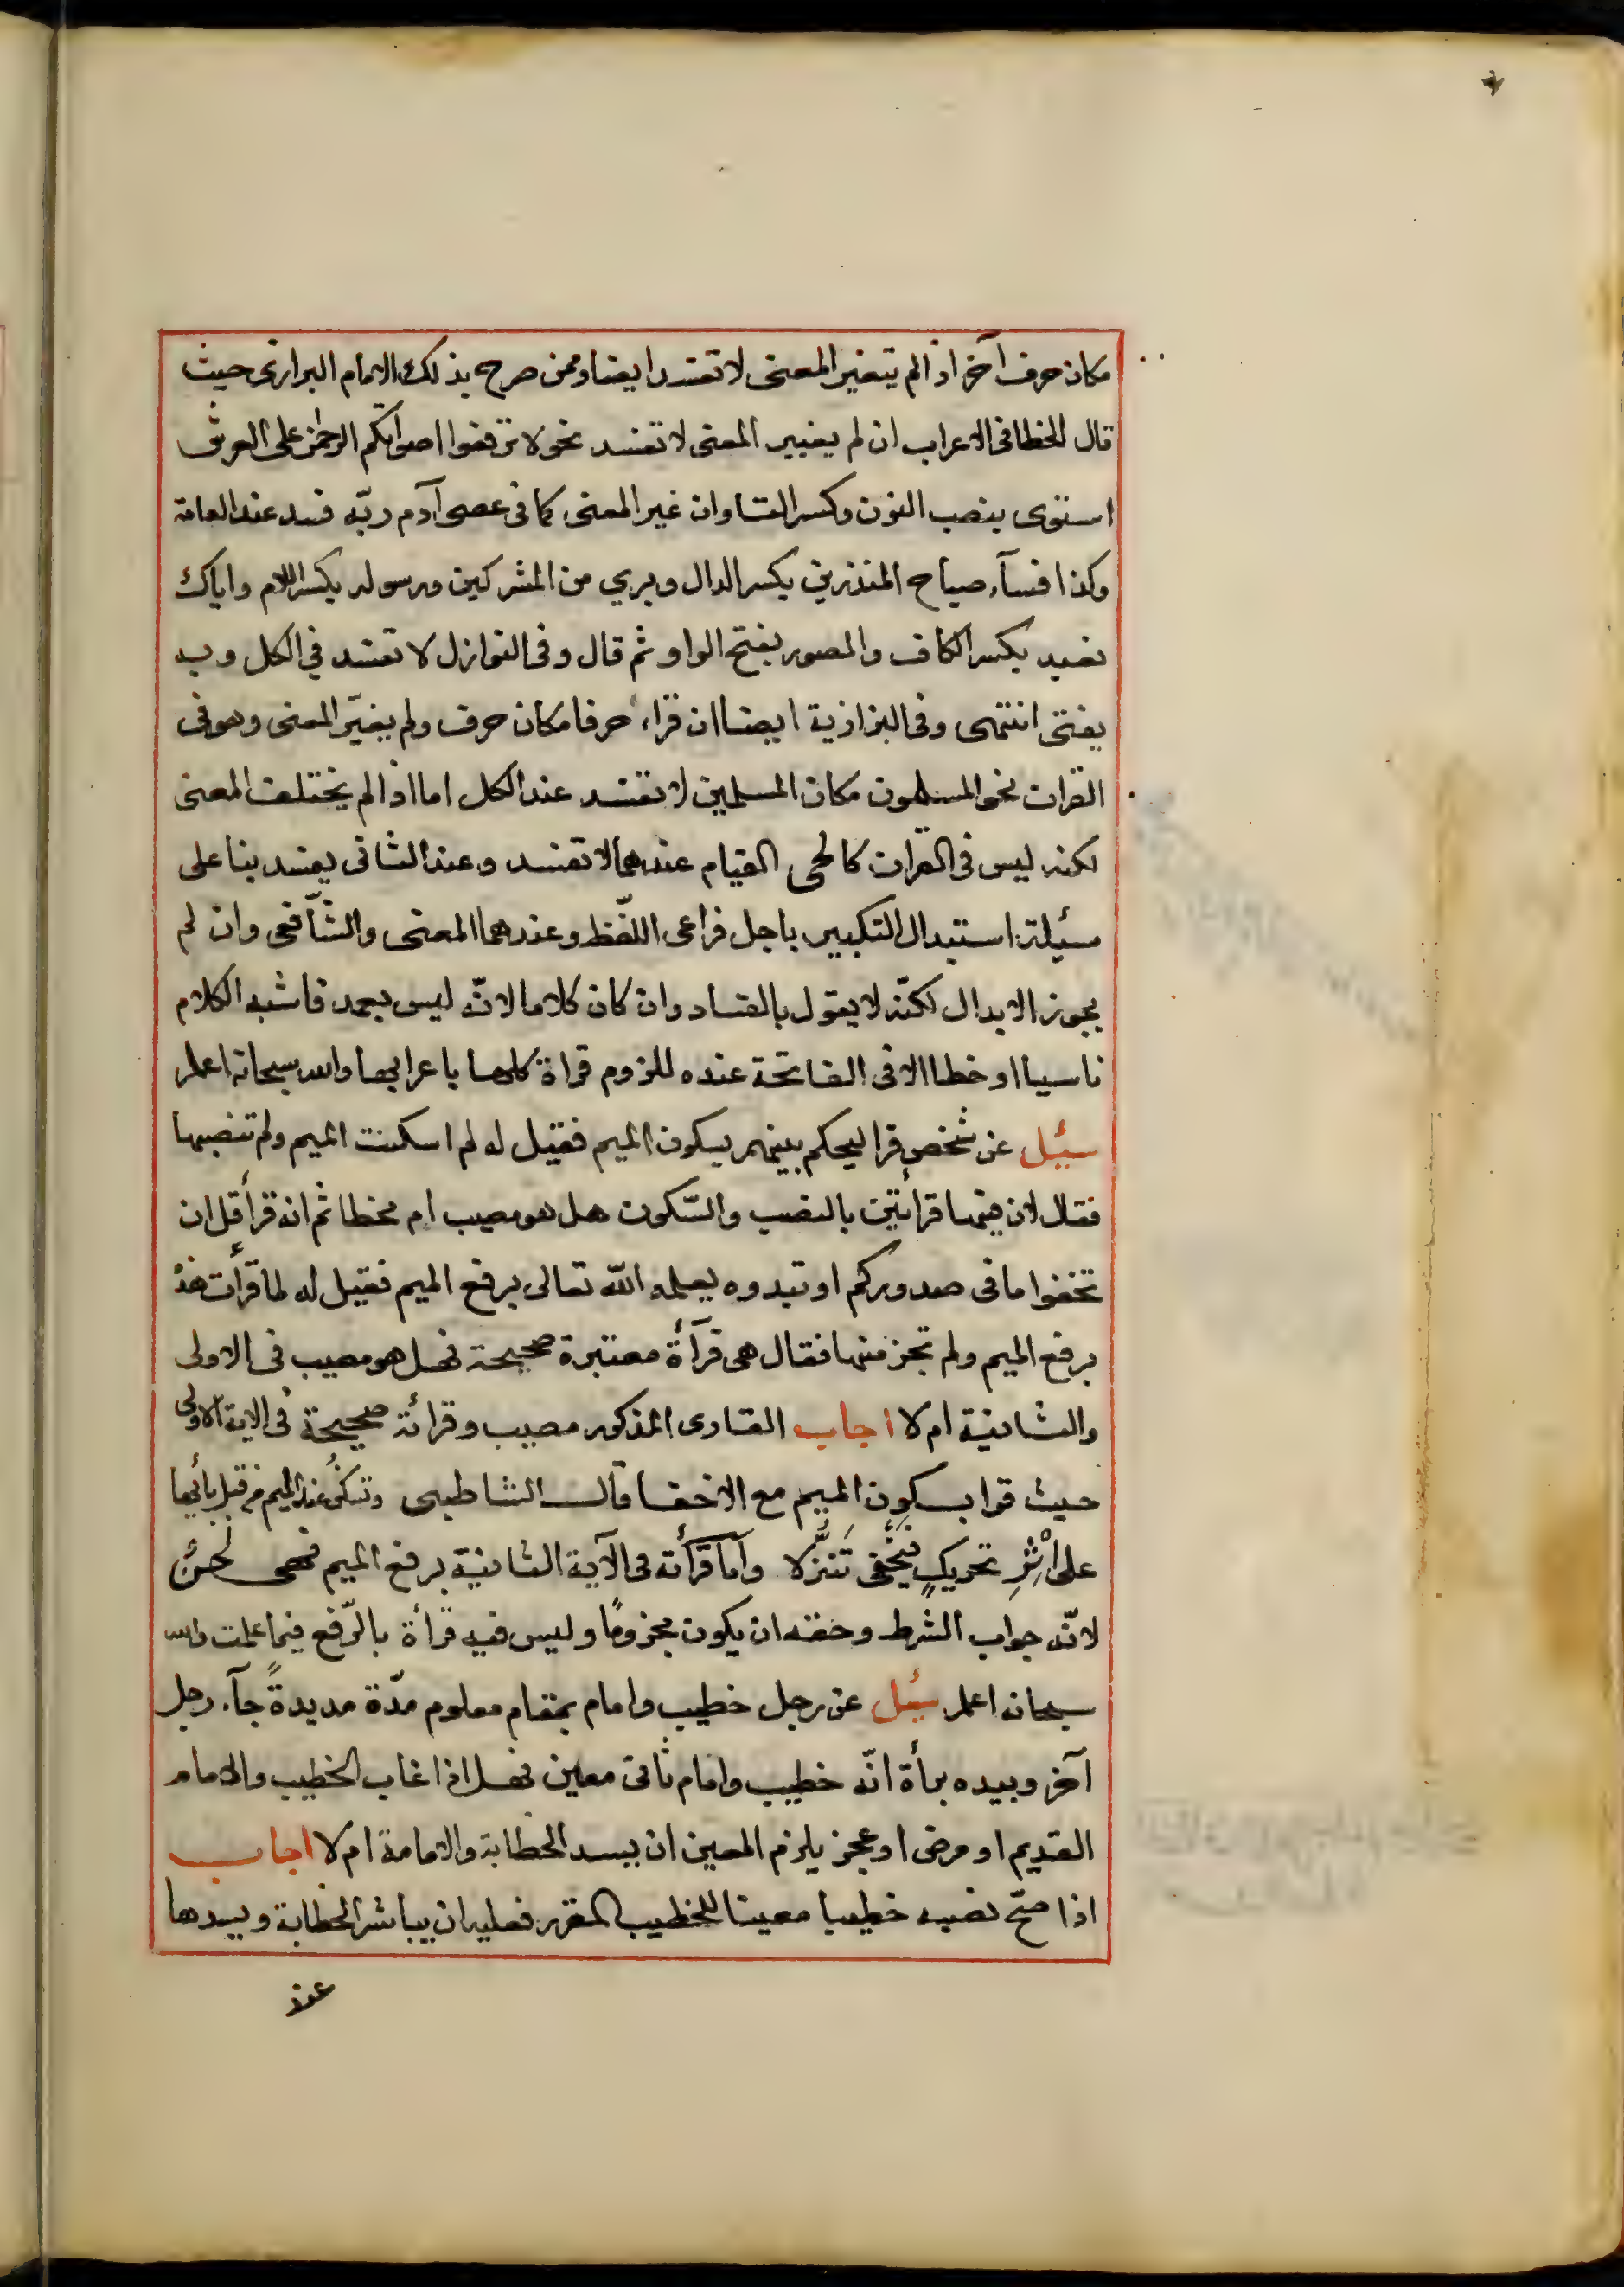 مكان حرف آخر اذا لم يتغير المعنى لا تفسد ايضا وممن صرح بذلك الامام البزازى حيث
قال الخطا فى الاعراب ان لم يغيير المعنى لا تفسد نحو لا ترفعوا اصواتكم الرحمن على العرش
استوى بنصب النون وكسر التا وان غير المعنى كما فى عصى آدم ربّه فسد عند العامة
وكذا فسآء صباح المنذرين بكسر الدال وبري من المشركين ورسوله بكسر اللام واياك
نعبد بكسر الكاف والمصور بفتح الواو ثم قال وفى النوازل لا تفسد في الكل وبه
يفتى انتهى وفى البزازية ايضا ان قراء حرفا مكان حرف ولم يغيّر المعنى وهو فى
القران نحو المسلمون مكان المسلمين لا تفسد عند الكل اما اذا لم يختلف المعنى
لكنه ليس فى القران كالحى القيام عندهما لا تفسد وعند الثانى يفسد بنا على
مسيلة استبدال التكبير باجل فراعى اللّفظ وعندهما المعنى والشّافعى وان لم
يجوز الابدال لكنّه لا يقول بالفساد وان كان كلاما لانّه ليس بعمد فاشبه الكلام
ناسيا او خطا الا فى الفاتحة عنده للزوم قراة كلها باعرابها والله سبحانه اعلم
سئيل عن شخص قرا ليحكم بينهم بسكون الميم فقيل له لم اسكنت الميم ولم تنصبها
فقال لان فيها قرأتين بالنصب والسّكون هل هو مصيب ام مخطا ثم انه قرأ قل ان
تخفوا ما فى صدوركم او تبدوه يعلمه الله تعالى برفع الميم فقيل له لما قرأت هذه
برفع الميم ولم تجزمها فقال هى قرآأة معتبرة صحيحة فهل هو مصيب فى الاولى
والثانية ام لا اجاب القارى المذكور مصيب وقرائة صحيحة فى الاية الاولى
حيث قرا بسكون الميم مع الاخفا قال الشاطبى وتسكن عنه الميم من قبل بائها
على اْثرِ تحريكٍ فيَخْفى تَنَزُّلا وأما قرآئته فى الآية الثانية برفع الميم فهى لحنٌ
لانّه جواب الشرط وحقه ان يكون مجزومًا وليس فيه قرأة بالرّفع فيما علمت والله
سبحانه اعلم سئيل عن رجل خطيب وامام بمقام معلوم مدّة مديدةً جآء رجل
آخر وبيده برأة انّه خطيب وامام ثانى معين فهل اذا غاب الخطيب والامام
القديم او مرض او عجز يلزم المعين ان يسد الخطابة والامامة ام لا اجاب
اذا صحّ نصبه خطيبا معينا للخطيب المقرر فعليه ان يباشر الخطابة ويسدها
عند